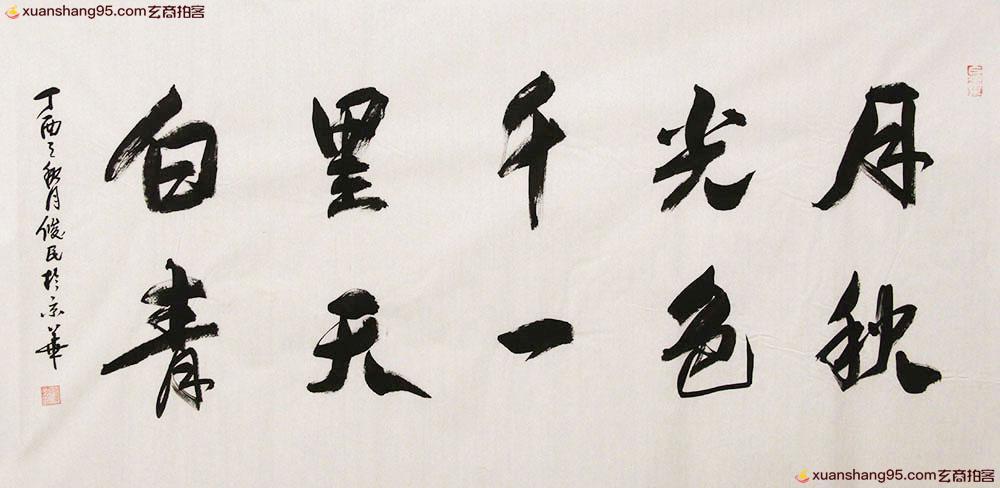 xuanshang95.com玄商拍客
xuanshang95.com玄商拍客
月光千里白
秋色一天青
丁酉之秋月俊民於京華
xuanshang95.com玄商拍客